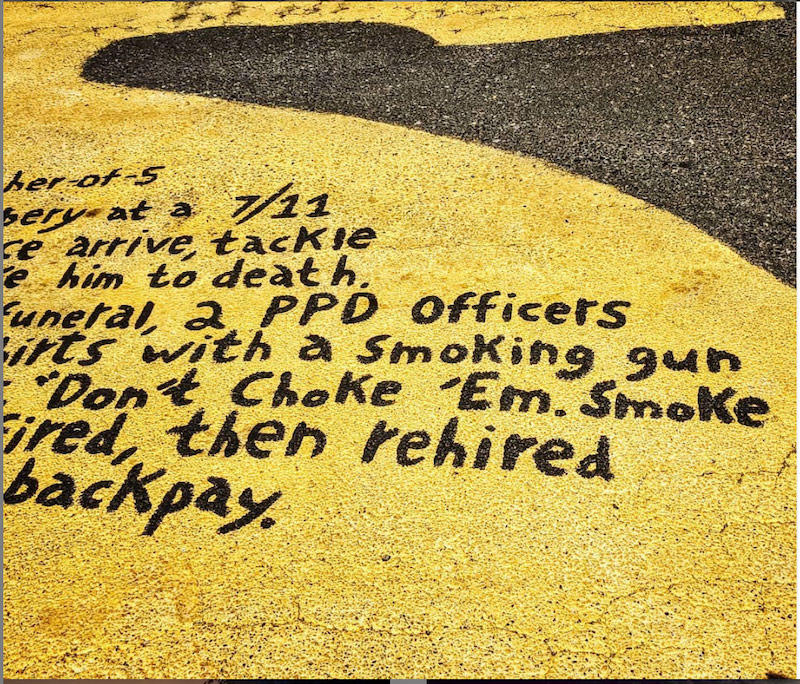 her-of-5
bery at a 7/11
ce arrive, tackle
e him to death.
funeral, 2 PPD Officers
irts with a smoking gun
"Don't Choke 'Em. Smoke
fired, then rehired
backpay.